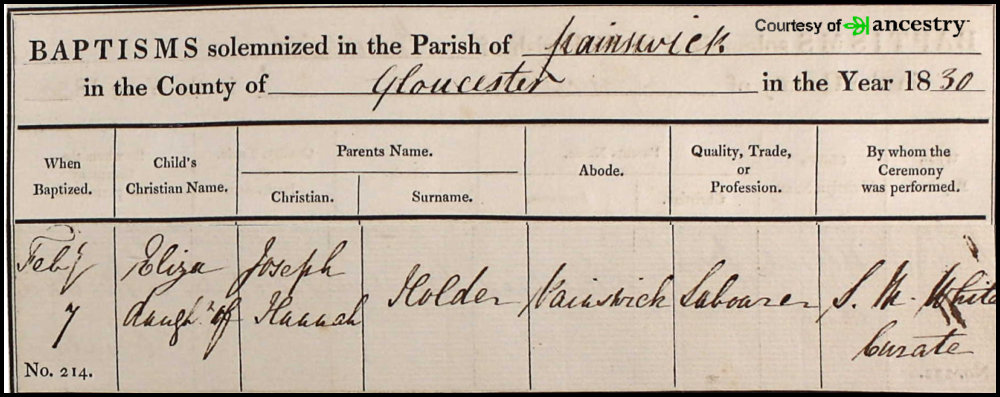 Courtesy of ancestry
BAPTISMS solemnized in the Parish of Painswick
in the County of Gloucester in the Year 1830
When Baptized.
Child's Christian Name.
Parents Name.
Christian.
Surname.
Abode.
Quality, Trade, or Profession.
By whom the Ceremony was performed.
Feby
7
No. 214.
Eliza
daughr of
Joseph
Hannah
Holder
Painswick
Labourer
S. M. White
Curate